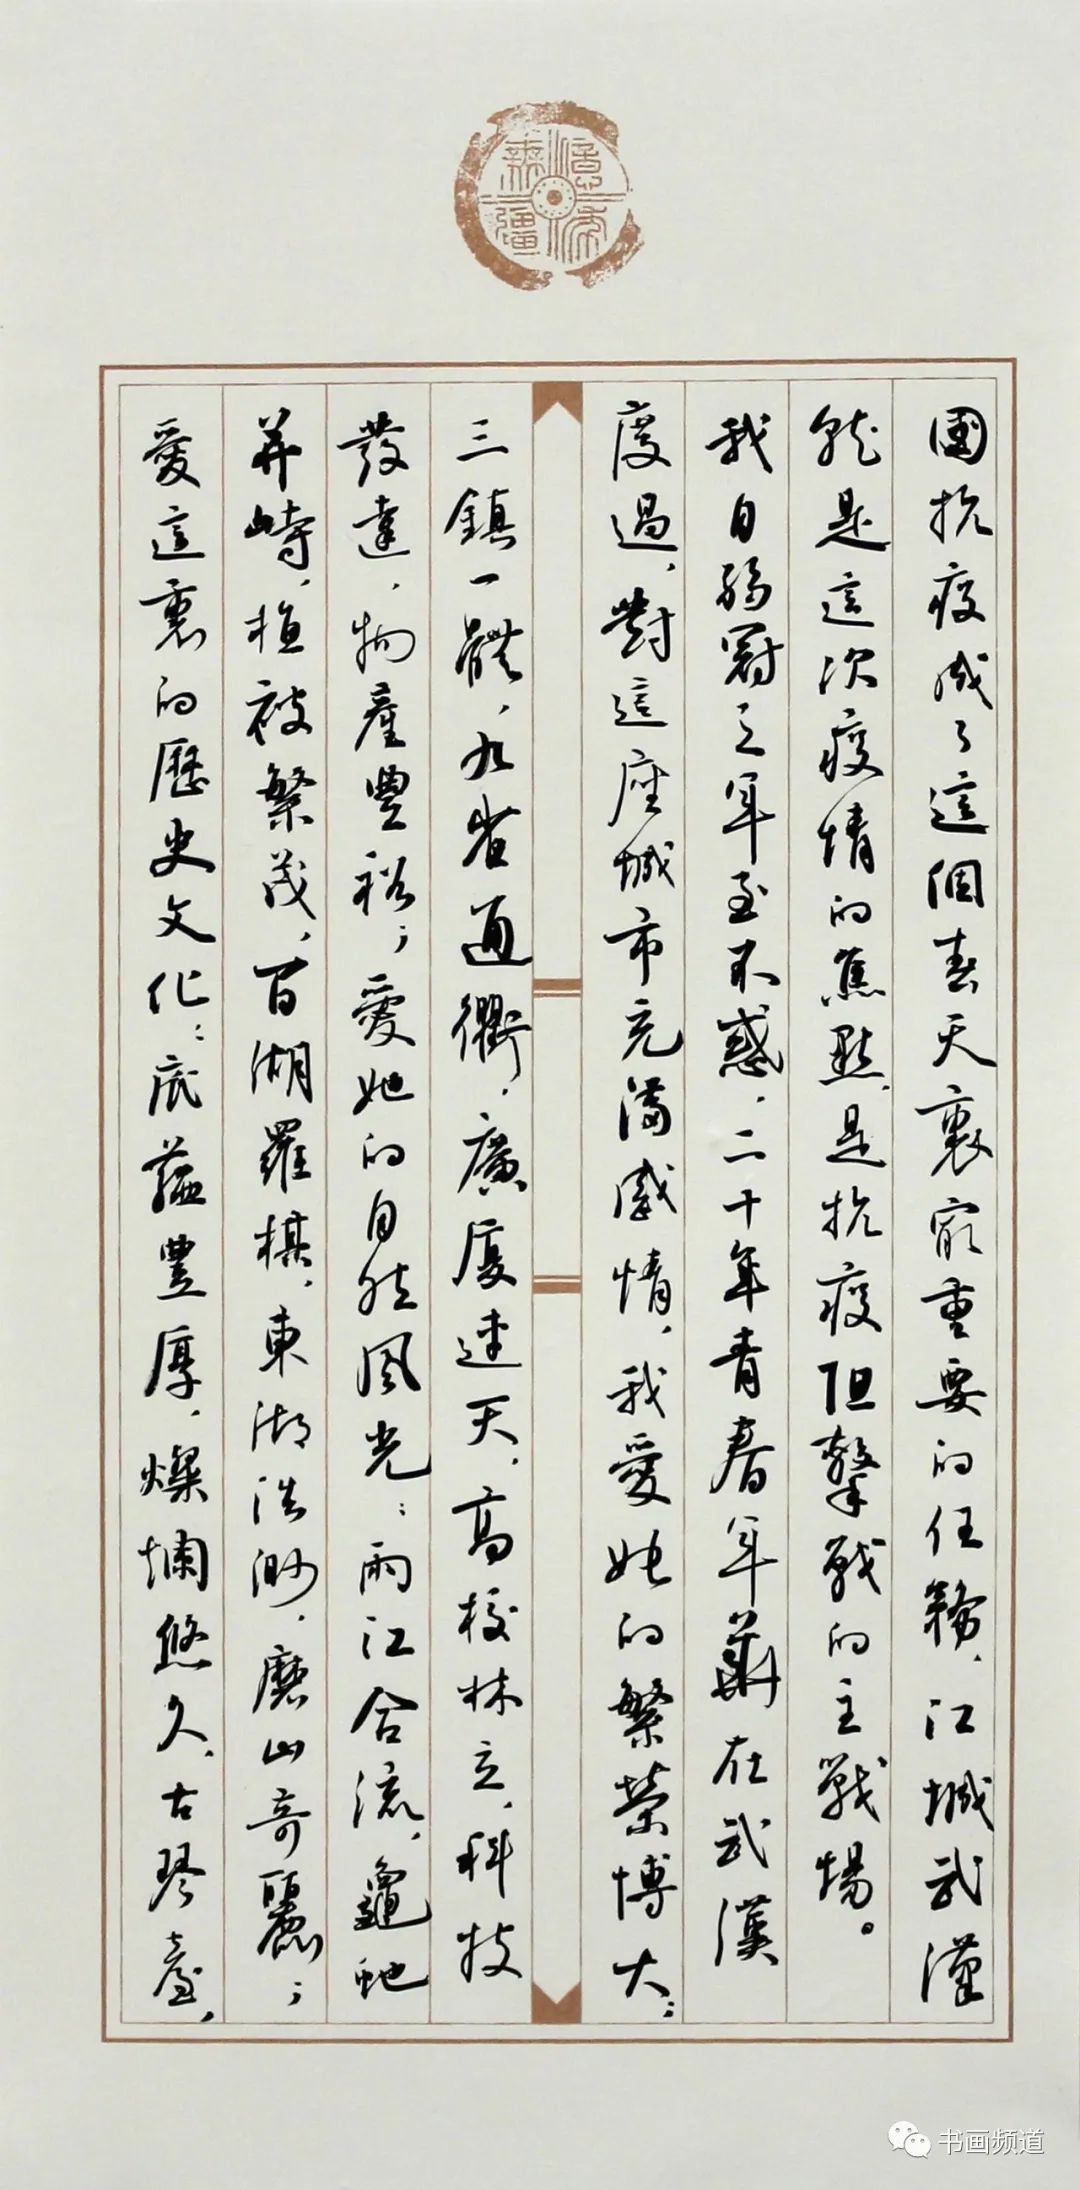 國抗疫成了這個春天裏最重要的任務，江城武漢
就是這次疫情的焦點，是抗疫阻擊戰的主戰場。
我自弱冠之年至不惑，二十年青春年華在武漢
度過，對這座城市充滿感情，我愛她的繁榮博大：
三鎮一體，九省通衢，廣厦連天，高校林立，科技
發達，物產豐裕；愛她的自然風光：兩江合流，龜蛇
并峙，植被繁茂，百湖羅棋，東湖浩渺，磨山奇麗；
愛這裏的歷史文化：底蘊豐厚，燦爛悠久，古琴臺，
书画频道